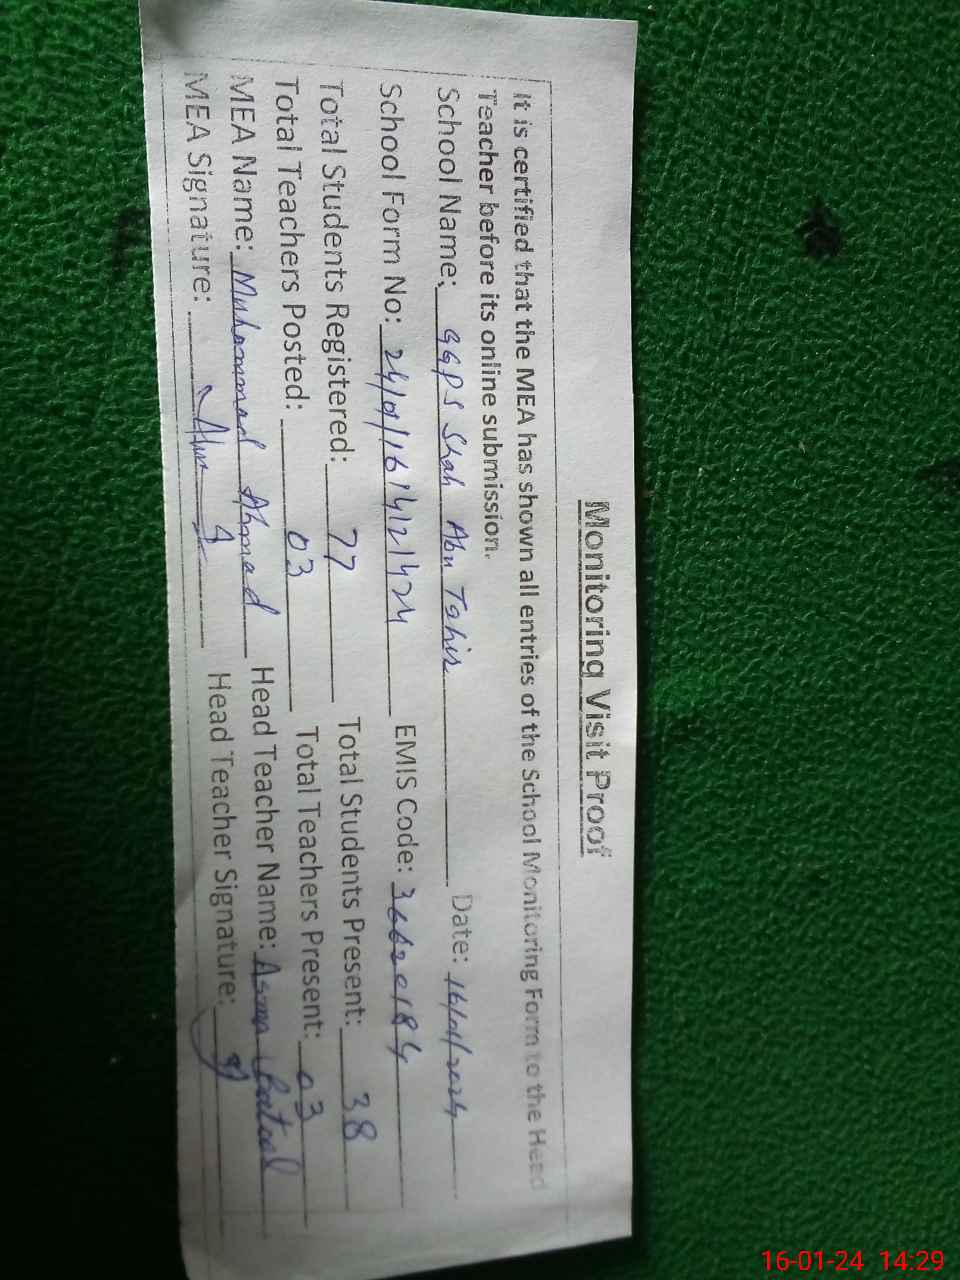 Monitoring Visit Proof
It is certified that the MEA has shown all entries of the School Monitoring Form to the Head
Teacher before its online submission.
School Name: GGPS Shah Abu Tahir Date: 16/01/2024
School Form No: 24/01/16/4/2/424 EMIS Code: 36620184
Total Students Registered: 77 Total Students Present: 38
Total Teachers Posted: 03 Total Teachers Present: 03
MEA Name: Muhammad Ahmad Head Teacher Name: Asma Batool
MEA Signature: Head Teacher Signature:
16-01-24 14:29